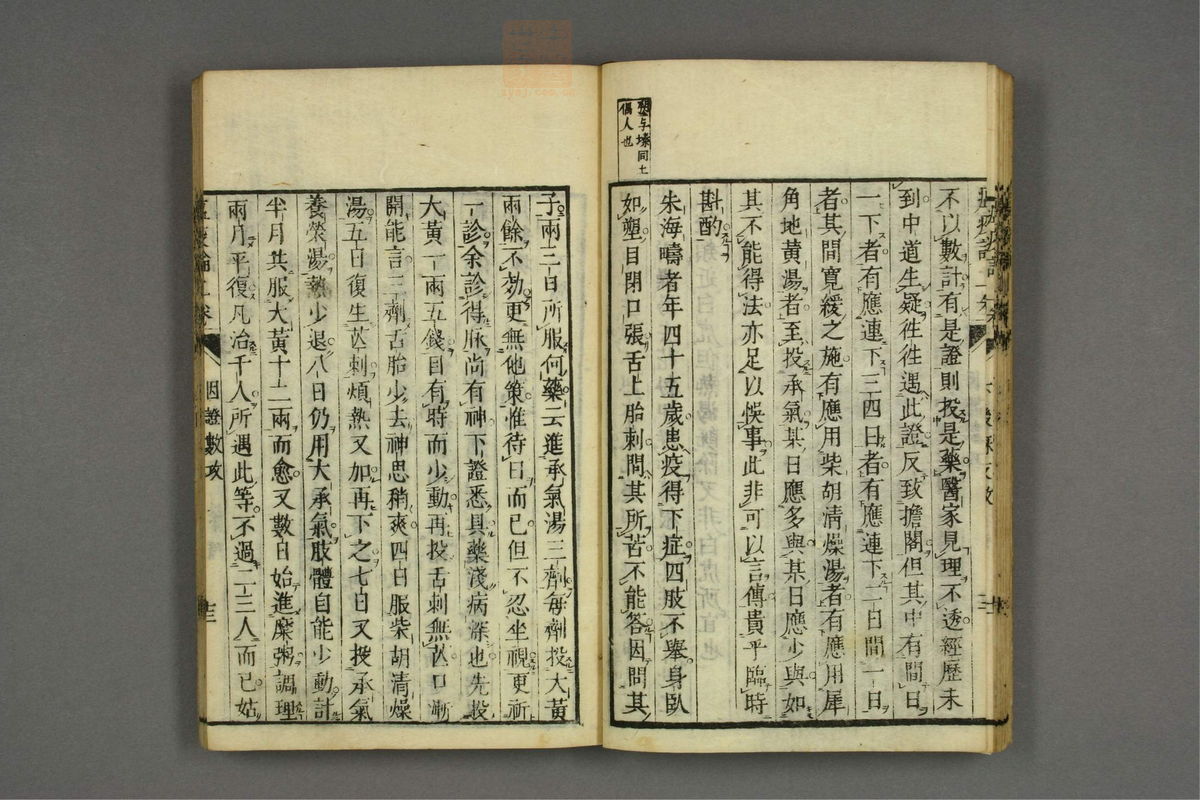 塑与塐同土
偶人也
不以數計有是證則投是藥醫家見理不透經歷未
到中道生疑徃徃遇此證反致擔閣但其中有間日
一下者有應連下三四日者有應連下二日間一日
者其間寛緩之施有應用柴胡清燥湯者有應用犀
角地黄湯者至投承氣某日應多與某日應少與如
其不能得法亦足以悞事此非可以言傳貴乎臨時
斟酌
朱海疇者年四十五歳患疫得下症四肢不舉身臥
如塑目閉口張舌上胎刺問其所苦不能答因問其
子兩三日所服何藥云進承氣湯三劑毎劑投大黄
兩餘不効更無他策惟待日而已但不忍坐視更祈
一診余診得脉尚有神下證悉具藥淺病深也先投
大黄一兩五錢目有時而少動再投舌刺無芒口漸
開能言三劑舌胎少去神思稍爽四日服柴胡清燥
湯五日復生芒刺煩熱又加再下之七日又投承氣
養榮湯熱少退八日仍用大承氣肢體自能少動計
半月共服大黄十二兩而愈又數日始進糜粥調理
兩月平復凡治千人所遇此等不過二三人而已姑
因證數攻
十三